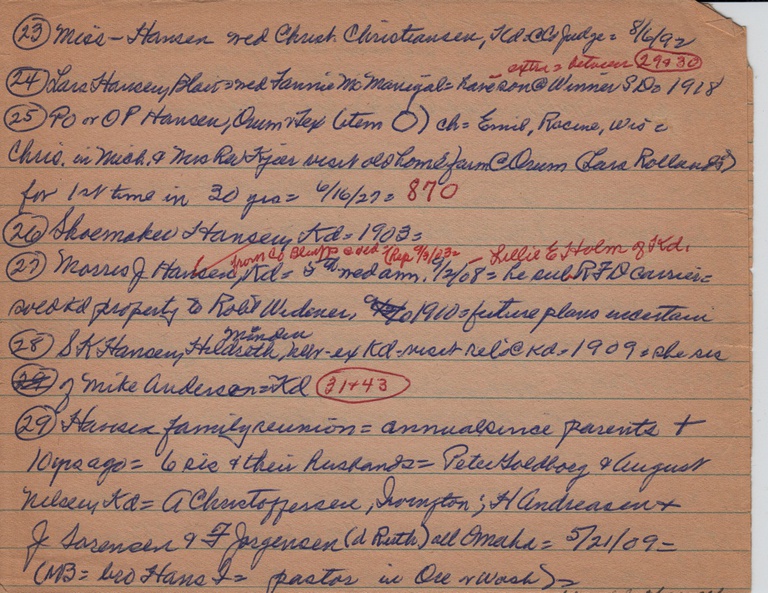 (23) Miss - Hansen wed Christ. Christiansen, Kd = Co Judge = 8/6/92
extra = between (29 & 30)
(24) Lars Hansen, Blair = wed Fannie McManigal = have son @ Winner S.D. 1918
(25) PO or OP Hansen, Orum & Tex (item O) ch = Emil, Racine, Wis &
Chris. in Mich. & Mrs Rev Kjier visit old home farm @ Orum (Lars Rollands)
for 1st time in 30 yrs = 6/16/27 = 870
(26) Shoemaker Hansen, Kd = 1903 =
from Blmff = ded (Rep 9/3/03 = - Lillie E Holm of Kd.
(27) Morris J Hansen, Kd = 5th wed ann. 6/2/08 = he sub RFD carrier =
sold Kd property to Robt Widener, 1910 = future plans uncertain
Minden
(28) S K Hansen, Hildreth, Nebr - ex Kd - visit rel @ Kd = 1909 = she sis
of Mike Anderson = Kd (31 & 43)
(29) Hansen family reunion = annual since parents +
10 yrs ago = 6 sis & their husbands = Peter Goldborg & August
Nelsen, Kd = A Christoffersen, Irvington; H Andreasen &
J Sorensen & F Jorgensen (d Ruth) all Omaha = 5/21/09 =
(NB = bro Hans I = pastor in Ore or Wash) =